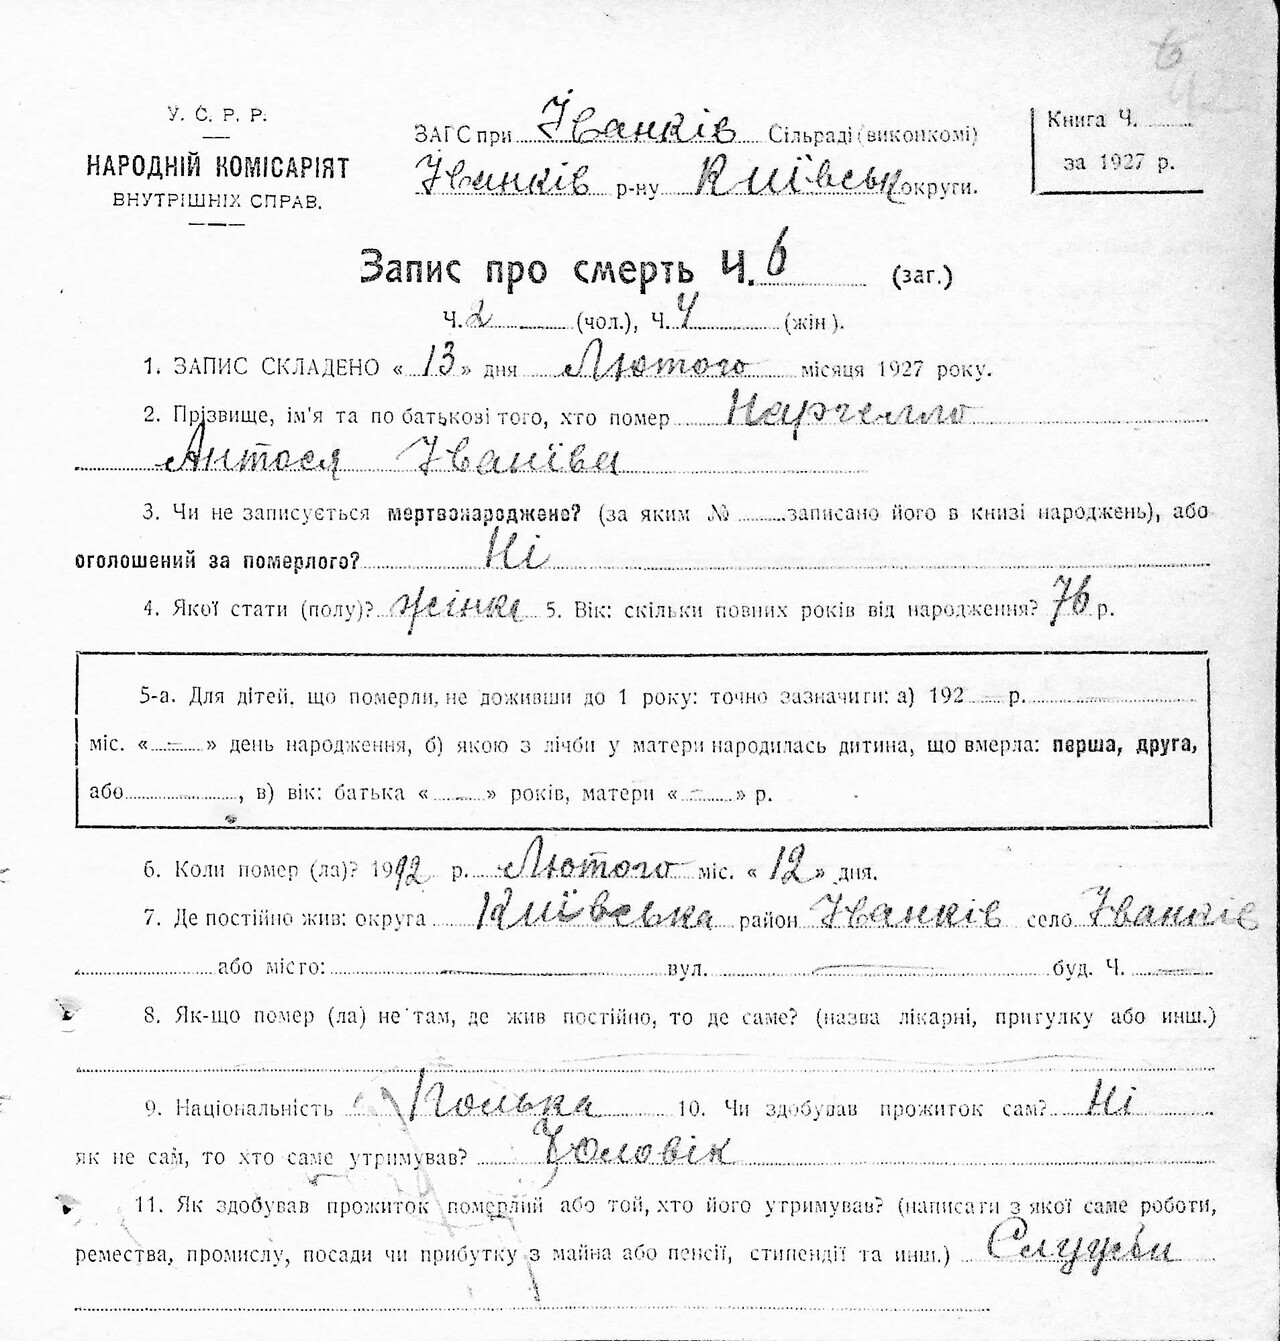 У. С. Р. Р.
НАРОДНІЙ КОМІСАРІЯТ
ВНУТРІШНІХ СПРАВ.
ЗАГС при Іванків Сільраді (виконкомі)
Іванків р-ну Київськ округи.
Книга Ч.
за 1927 р.
Запис про смерть Ч. 6 (заг.)
Ч. 2 (чол.), Ч. 4 (жін).
1. ЗАПИС СКЛАДЕНО « 13 » дня Лютого місяця 1927 року.
2. Прізвище, ім'я та по батькові того, хто помер
Антося Іванівa
3. Чи не записується мертвонароджене? (за яким № записано його в книзі народжень), або
оголошений за померлого? Ні
4. Якої стати (полу)? жінка 5. Вік: скільки повних років від народження? 76 р.
5-а. Для дітей, що померли, не доживши до 1 року: точно зазначити: а) 192 — р.
міс. « — » день народження, б) якою з лічби у матери народилась дитина, що вмерла: перша, друга,
або , в) вік: батька « — » років, матери « — » р.
6. Коли помер (ла)? 19 р. Лютого міс. « 12 » дня.
7. Де постійно жив: округа Київська район Іванків село Іванків
або місто: — вул. — буд. Ч. —
8. Як-що помер (ла) не там, де жив постійно, то де саме? (назва лікарні, притулку або инш.)
9. Національність Полька 10. Чи здобував прожиток сам? Ні
як не сам, то хто саме утримував? Чоловік
11. Як здобував прожиток померлий або той, хто його утримував? (написати з якої саме роботи,
ремества, промислу, посади чи прибутку з майна або пенсії, стипендії та инш.)